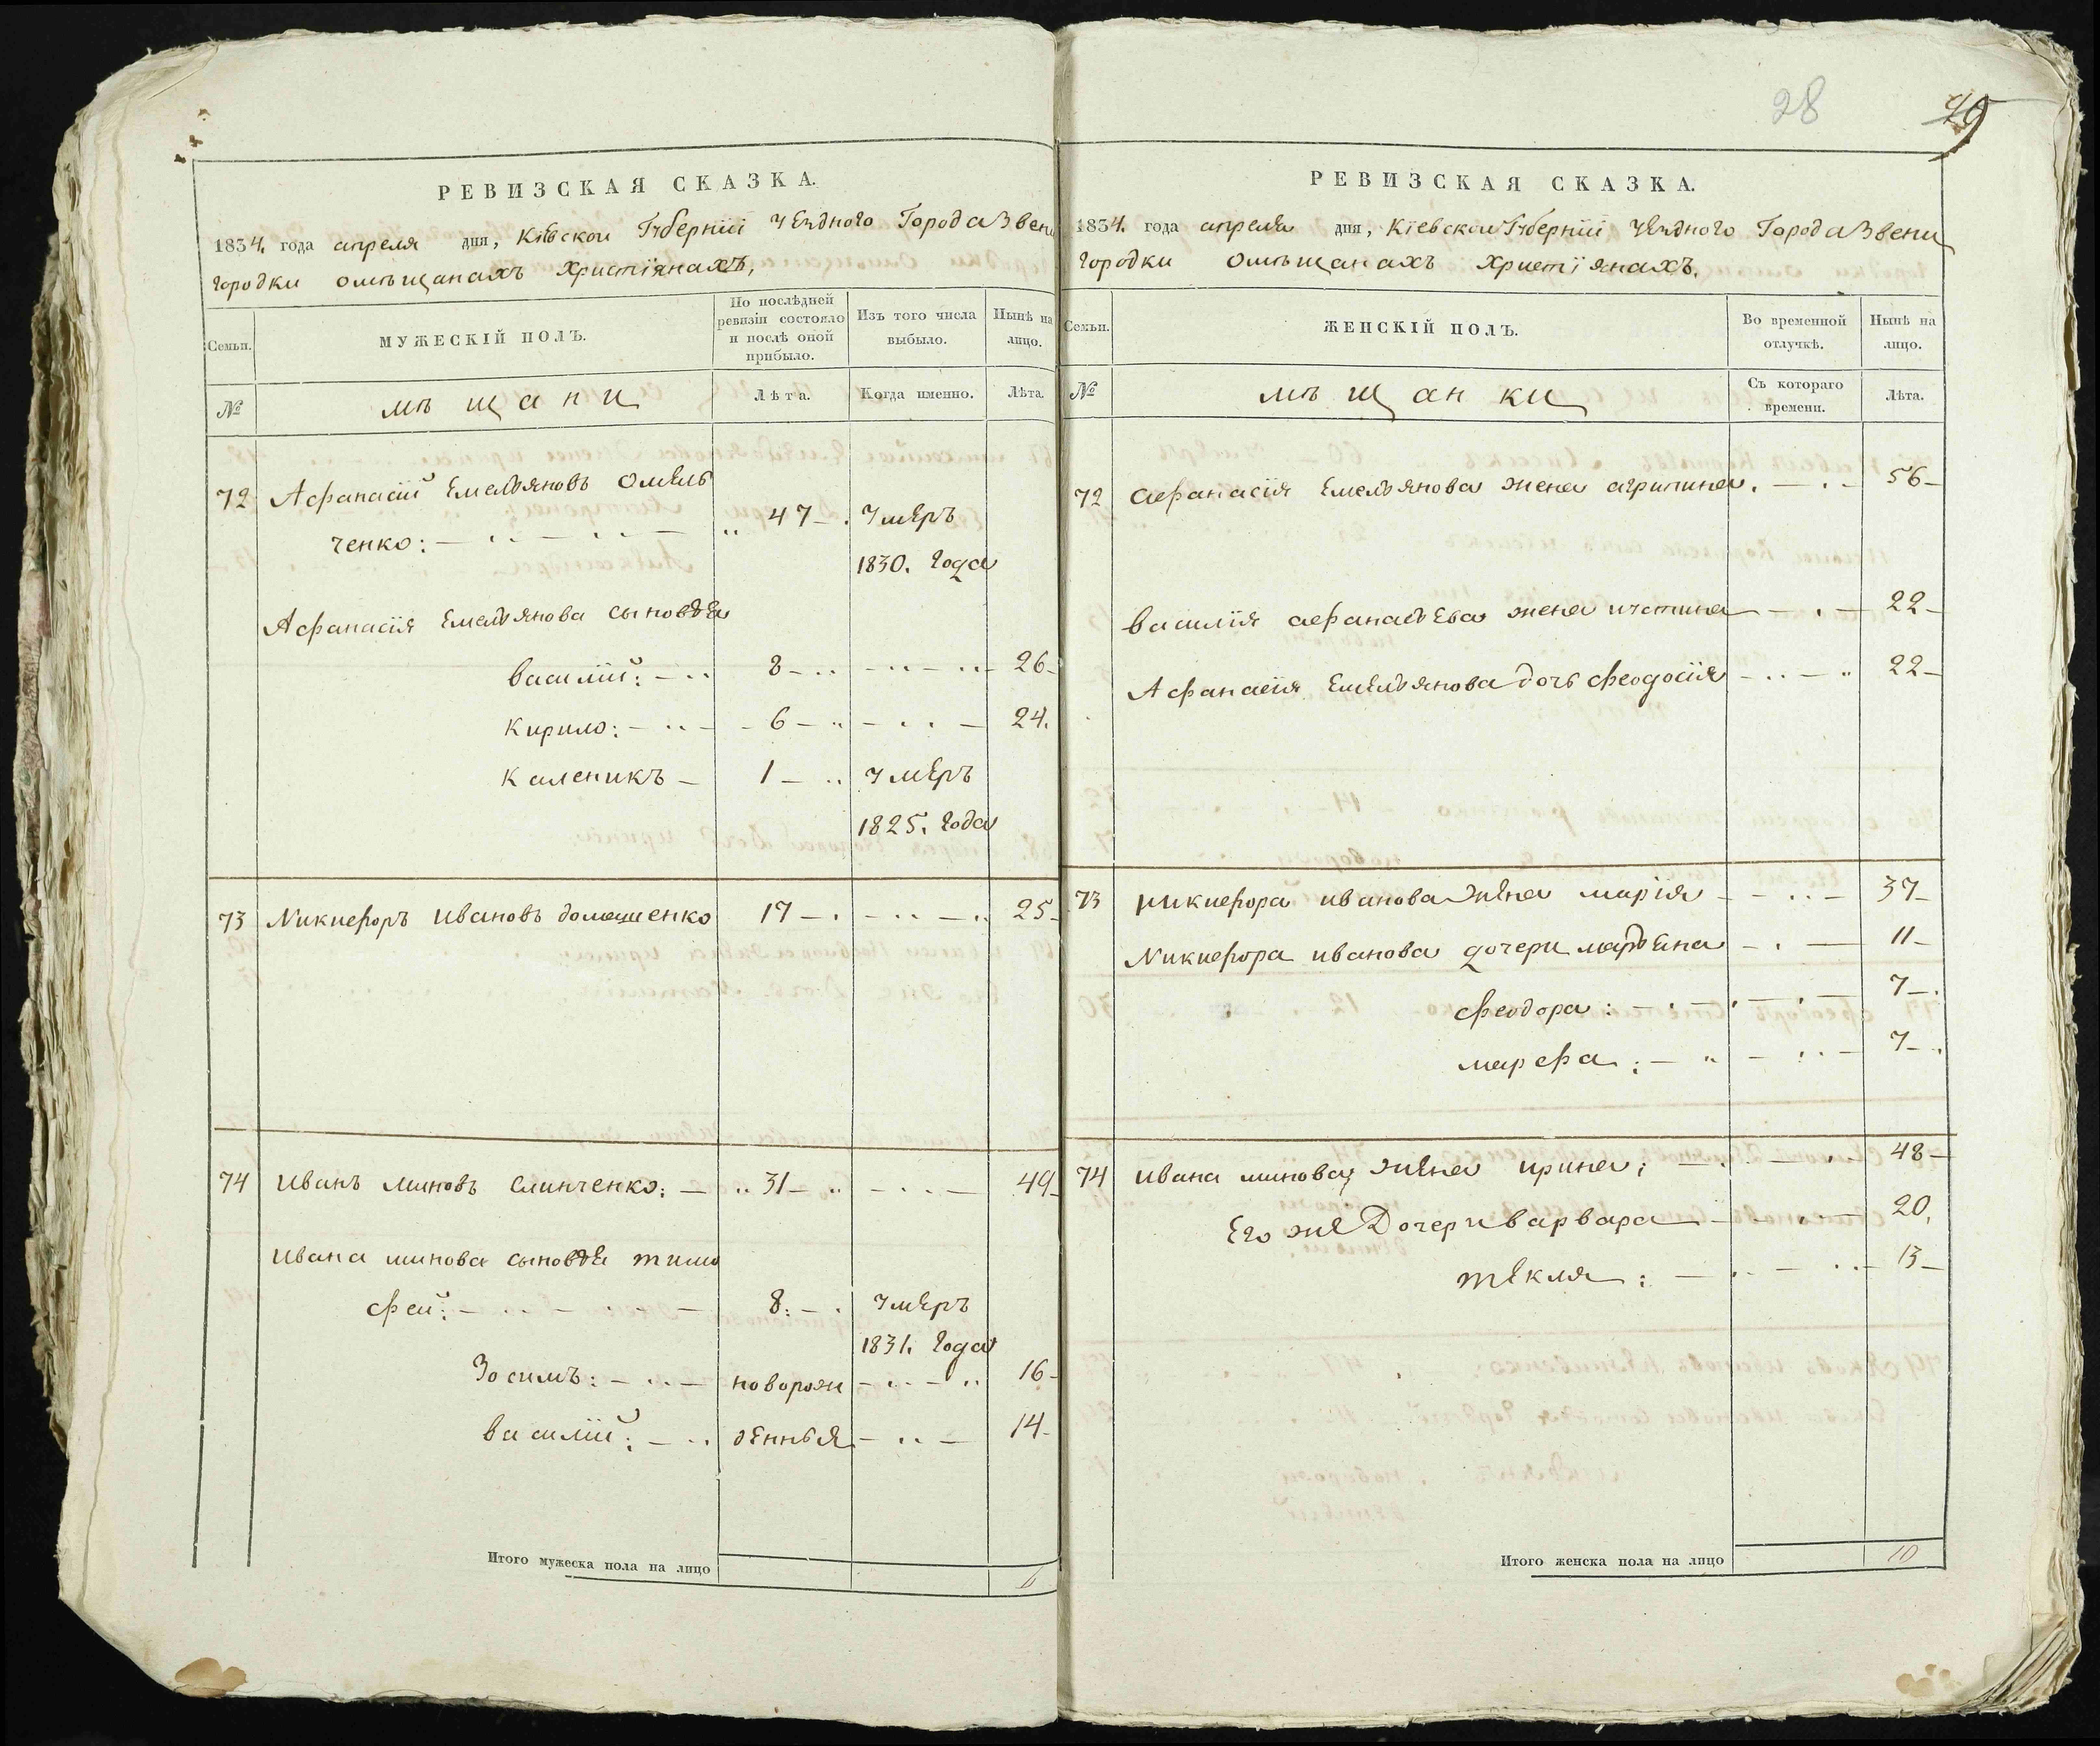 РЕВИЗСКАЯ СКАЗКА.
1834. года апреля дня, Кіевской Губерніи Уезднаго Города Звени
городки омѣщанахъ Христіянахъ,
Семьи.
МУЖЕСКІЙ ПОЛЪ.
По послѣдней ревизіи состояло и послѣ оной прибыло.
Изъ того числа выбыло.
Нынѣ на лицо.
№
мѣщани
Лѣта.
Когда именно.
Лѣта.
72 Афанасій Емельяновъ Омель
ченко: 47 умеръ
1830. года
Афанасія Емельянова сыновья
василій: 8 26
Кирило: 6 24.
Каленикъ 1 умеръ
1825. года
73 Никифоръ ивановъ домашенко 17 25
74 иванъ миновъ слинченко: 31 49
ивана минова сыновья тимо
фей: 8: умеръ
1831. года
Зосимъ: новорож 16
василій: денныя 14
Итого мужеска пола на лицо 6
28
РЕВИЗСКАЯ СКАЗКА.
1834. года апреля дня, Кіевской Губерніи Уезднаго Города Звени
городки омѣщанахъ Христіянахъ.
Семьи.
ЖЕНСКІЙ ПОЛЪ.
Во временной отлучкѣ.
Нынѣ на лицо.
№
мѣщанки
Съ котораго времени.
Лѣта.
72 афанасія Емельянова жена агрипина. 56
василія афанасьева жена иустина 22
Афанасія Емельянова дочь феодосія 22
73 никифора иванова жена марія 37
Никифора иванова дочери марьяна 11
феодора: 7
марфа: 7
74 ивана минова жена ирина: 48
Его же Дочери варвара 20.
текля: 13
Итого женска пола на лицо 10